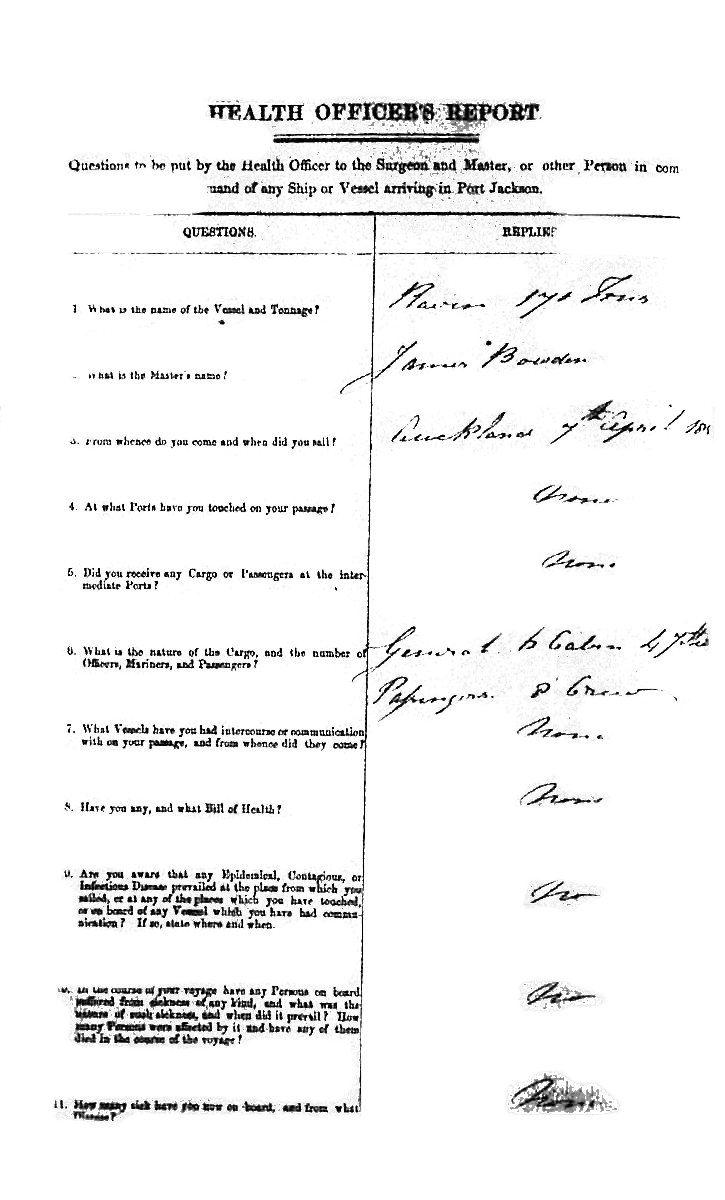 HEALTH OFFICER'S REPORT
Questions to be put by the Health Officer to the Surgeon and Master, or other Person in com
mand of any Ship or Vessel arriving in Port Jackson.
QUESTIONS.
REPLIES
1. What is the name of the Vessel and Tonnage?
Tons
What is the Master's name?
James Bowden
3. From whence do you come and when did you sail?
Auckland 7th April
4. At what Ports have you touched on your passage?
None
5. Did you receive any Cargo or Passengers at the inter-
mediate Ports?
None
6. What is the nature of the Cargo, and the number of
Officers, Mariners, and Passengers?
General Cabin
Passengers 8 Crew
7. What Vessels have you had intercourse or communication
with on your passage, and from whence did they come?
None
8. Have you any, and what Bill of Health?
None
9. Are you aware that any Epidemical, Contagious, or
Infectious Disease prevailed at the place from which you
sailed, or at any of the places which you have touched,
or on board of any Vessel which you have had commu-
nication? If so, state where and when.
No
10. In the course of your voyage have any Persons on board
suffered from sickness of any kind, and what was the
nature of such sickness, and when did it prevail? How
many Persons were affected by it and have any of them
died in the course of the voyage?
No
11. How many sick have you now on board, and from what
Disease?
None